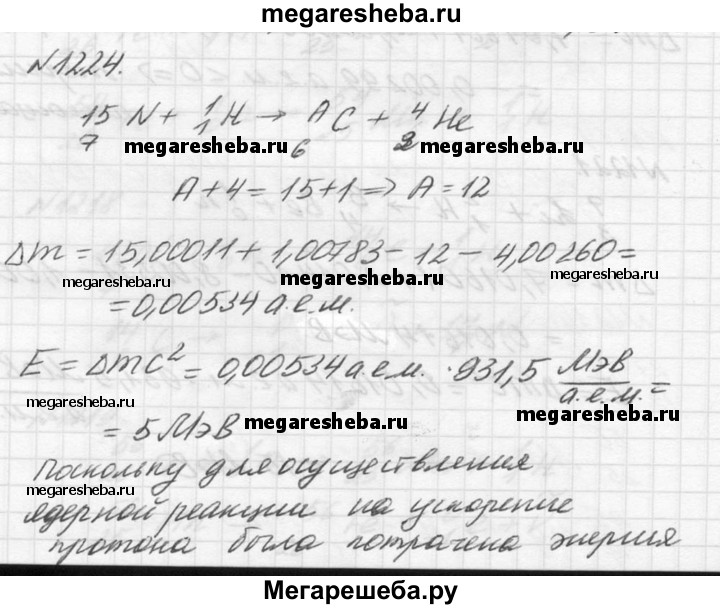 megaresheba.ru
N1224.
15 7 N + 1 1 H → A 6 C + 4 2 He
megaresheba.ru megaresheba.ru
A + 4 = 15 + 1 => A = 12
Δm = 15,00011 + 1,00783 - 12 - 4,00260 =
megaresheba.ru megaresheba.ru megaresheba.ru
= 0,00534 а.е.м.
E = Δmc² = 0,00534 а.е.м. · 931,5 МэВ/а.е.м. =
megaresheba.ru megaresheba.ru
= 5 МэВ megaresheba.ru
Поскольку для осуществления
megaresheba.ru megaresheba.ru
ядерной реакции на ускорение
протона была потрачена энергия
Мегарешеба.ру